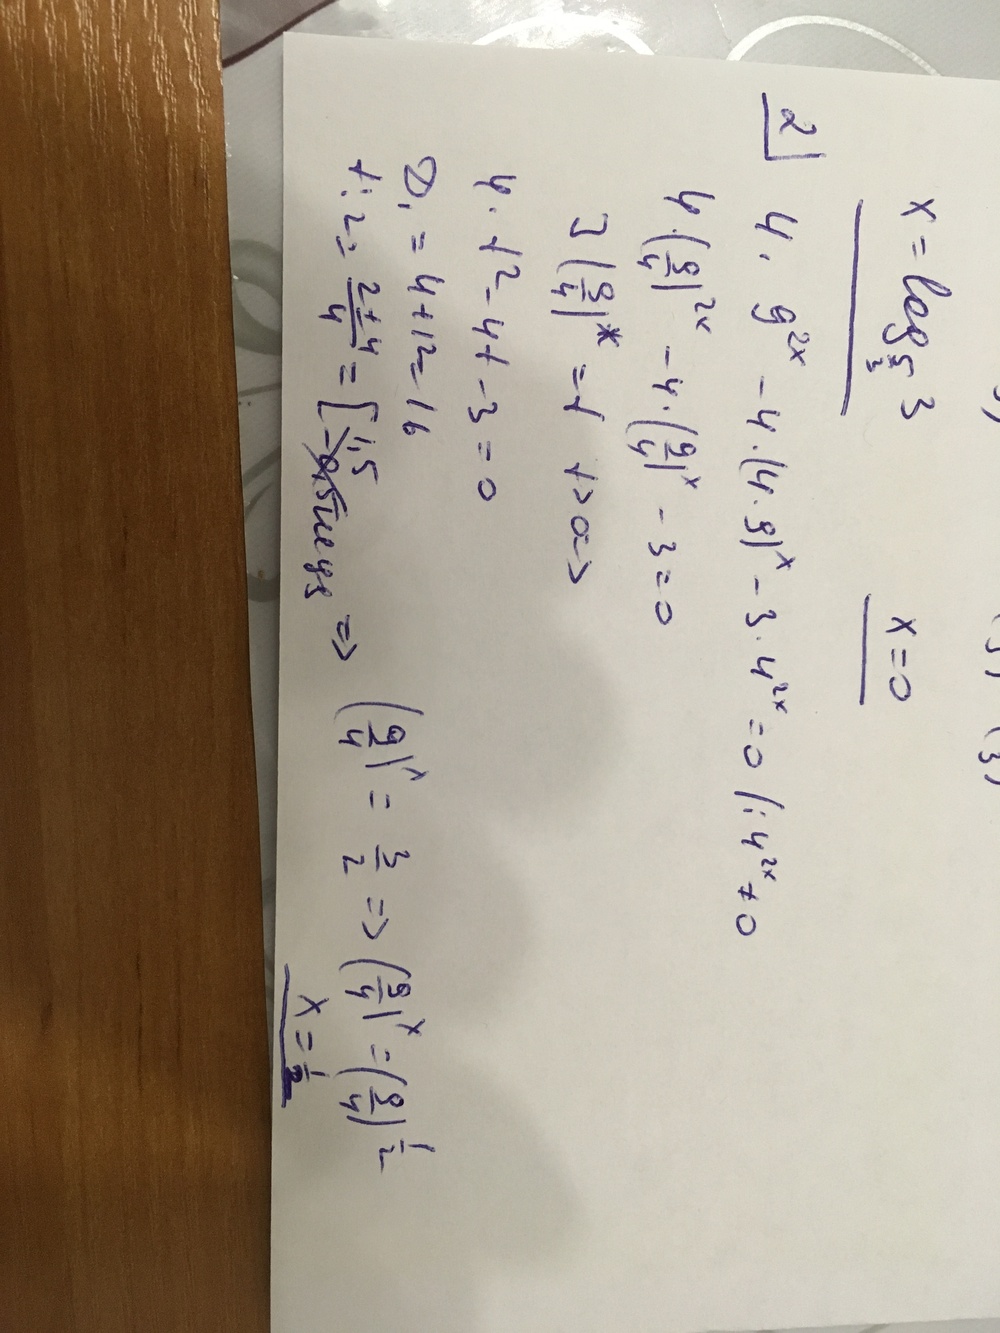 x = log₅/₃ 3    x = 0
2) 4 · 9^2x - 4 · (4 · 9)^x - 3 · 4^2x = 0 |: 4^2x ≠ 0
4 · (9/4)^2x - 4 · (9/4)^x - 3 = 0
] (9/4)^x = t  t > 0 =>
4 · t² - 4t - 3 = 0
D₁ = 4 + 12 = 16
t₁,₂ = (2 ± 4)/4 = [ 1,5 => (9/4)^x = 3/2 => (9/4)^x = (9/4)^1/2
-0,5
x = 1/2